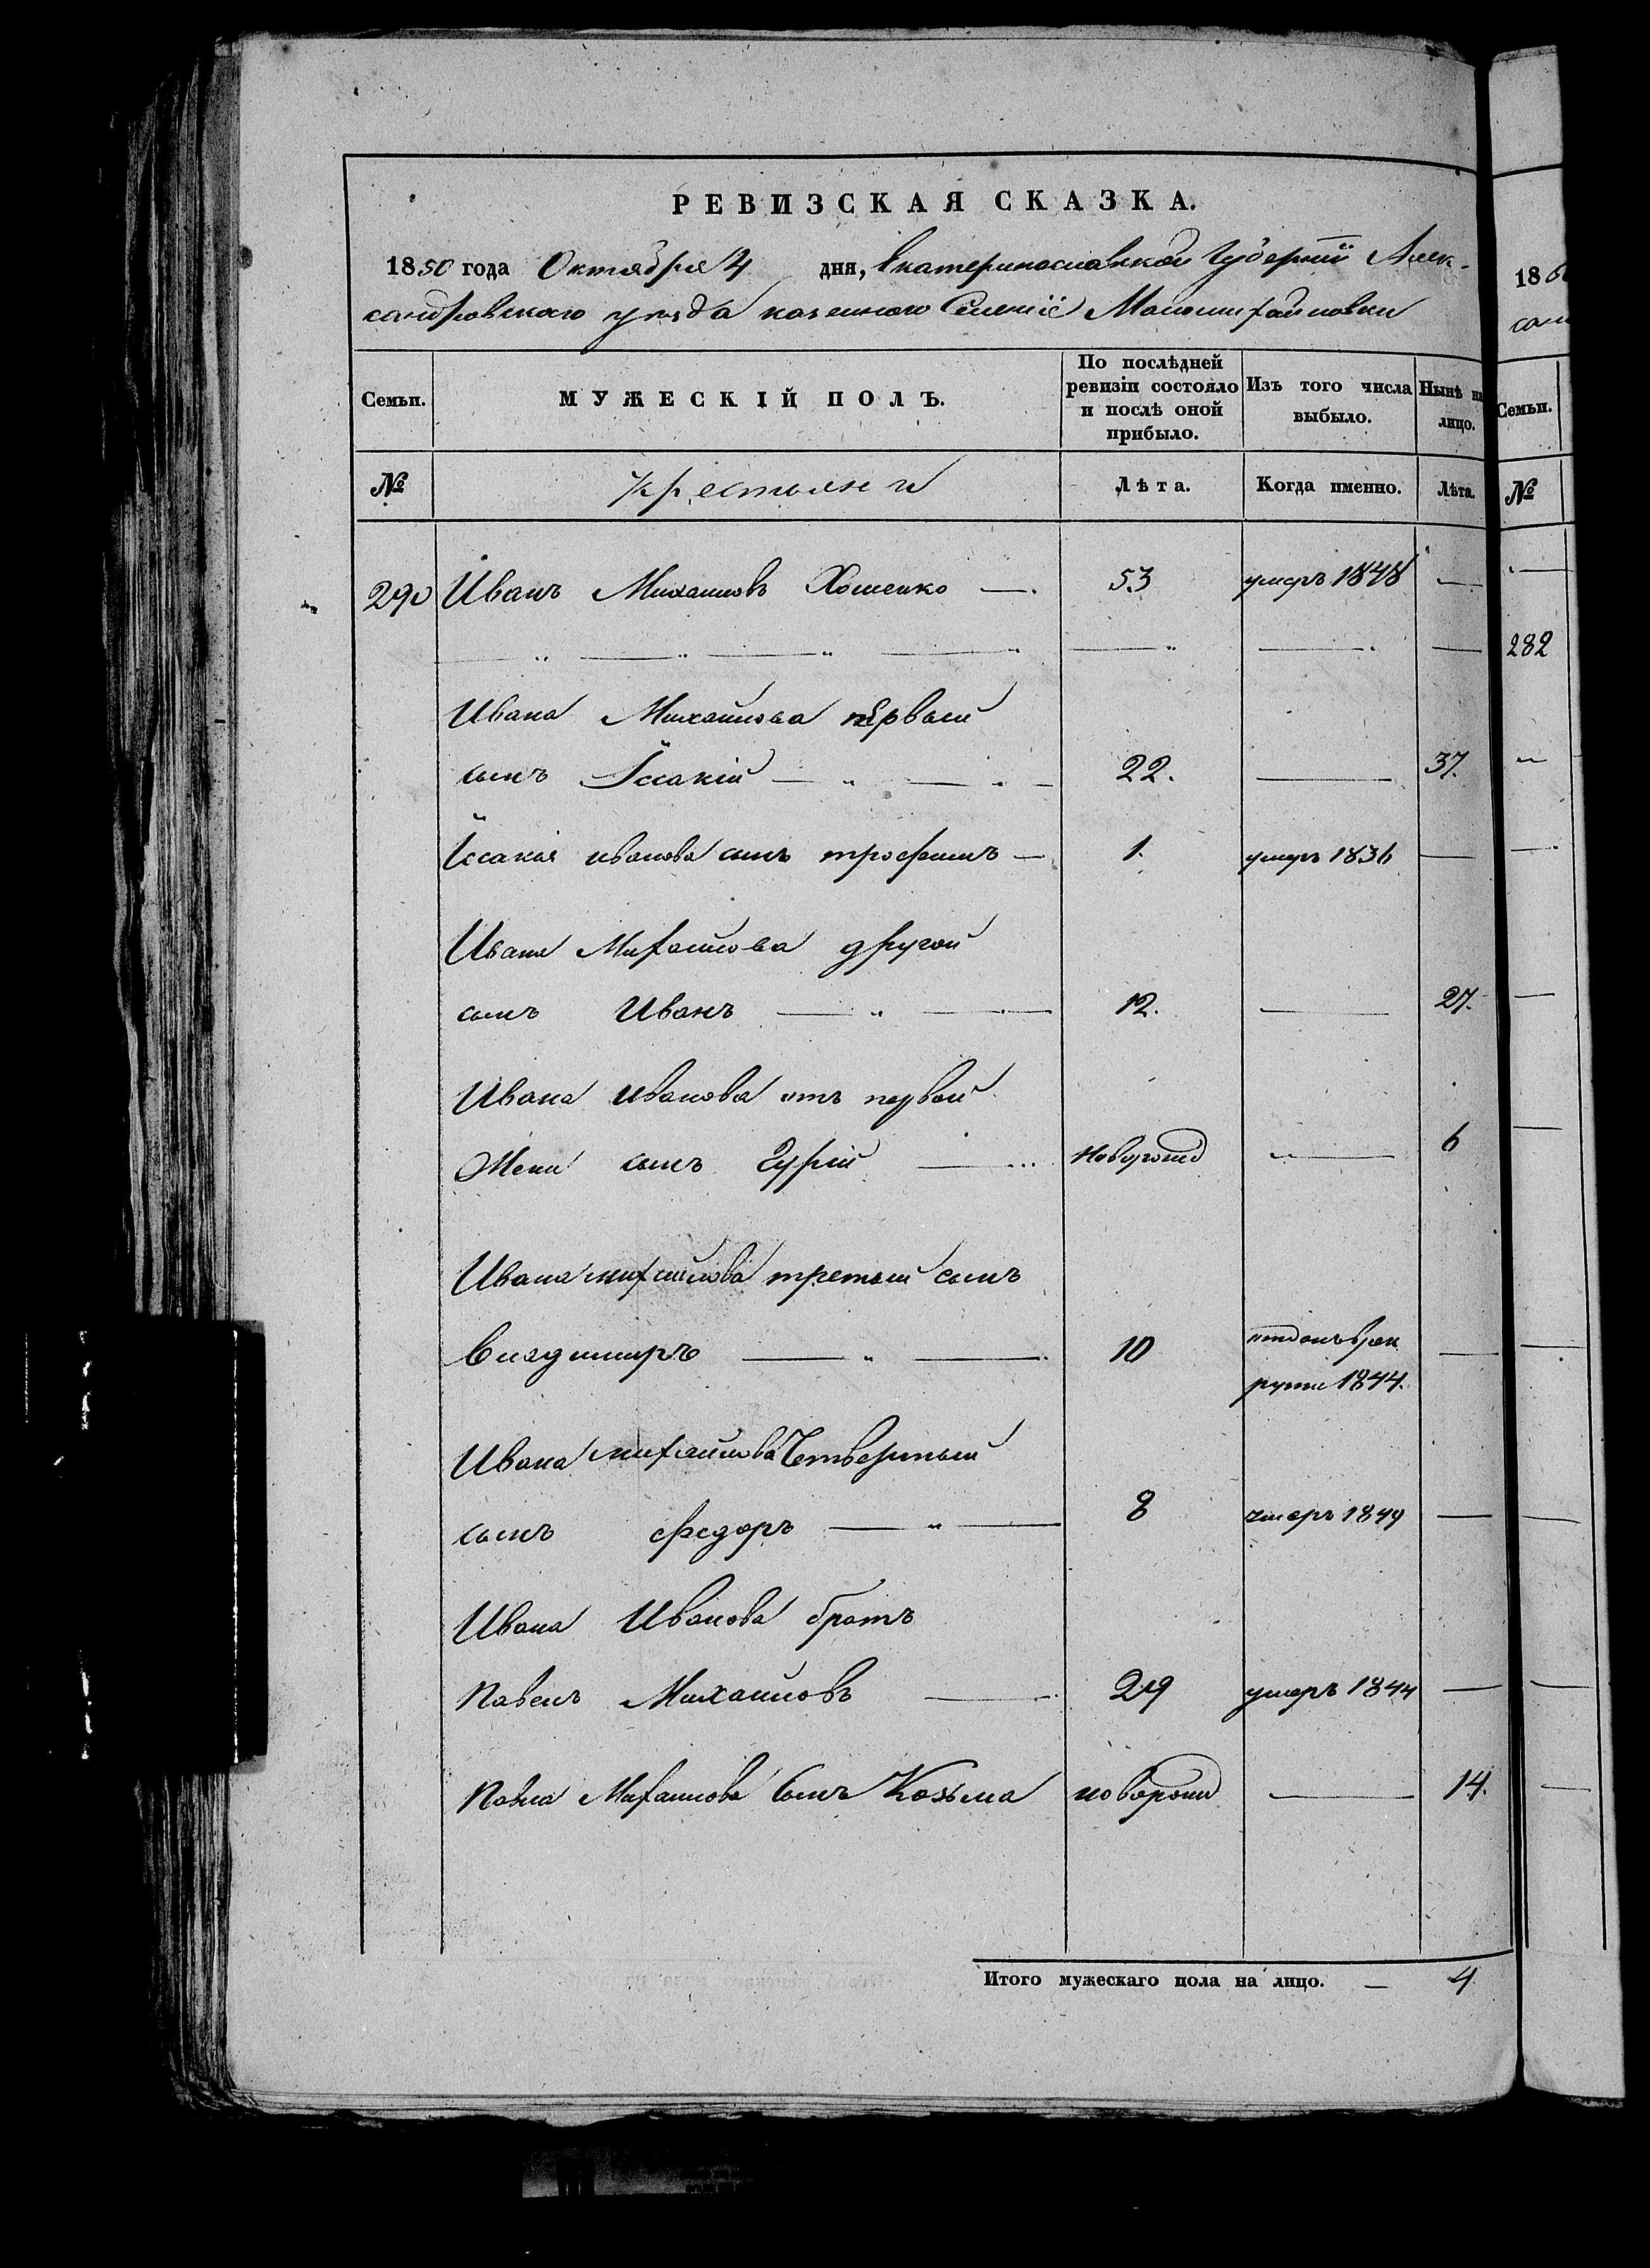 РЕВИЗСКАЯ СКАЗКА.
1850 года Октября 4 дня, Екатеринославской Губернии Алек-
сандровскаго уезда казеннаго Селенiя Маломихайловки
Семьи.
МУЖЕСКІЙ ПОЛЪ.
По послѣдней ревизіи состояло и послѣ оной прибыло.
Изъ того числа выбыло.
Нынѣ на лицо.
№
крестьяне
Лѣта.
Когда именно.
Лѣта.
290 Иванъ Михаиловъ Хоменко 53 умеръ 1848 —
Ивана Михайлова первый
сынъ Ісакій 22. — 37.
Ісакія иванова сынъ трофимъ 1. умеръ 1836 —
Ивана Михайлова другой
сынъ Иванъ 12. — 27.
Ивана иванова отъ первой
Жены сынъ Гурій Новорожд — 6
Ивана михайлова третьий сынъ
Владимиръ 10 отданъ в рек
руты 1844. —
Ивана михайлова Четвертый
сынъ федоръ 8 умеръ 1849 —
Ивана Иванова братъ
Павелъ Михайловъ 29 умеръ 1844 —
Павла Михаилова Сынъ Козьма новорожд — 14.
Итого мужескаго пола на лицо. — 4
18
Семьи.
№
282